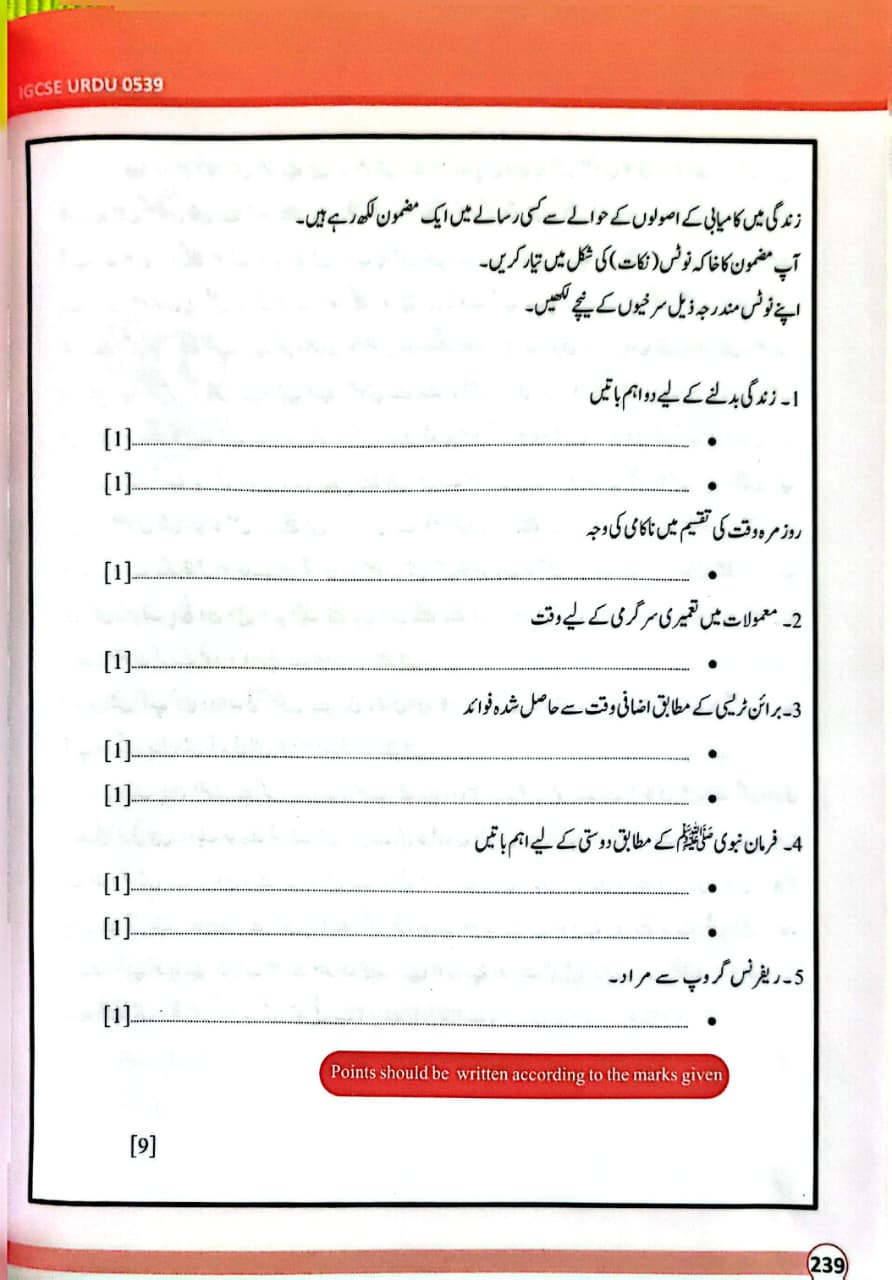 IGCSE URDU 0539
زندگی میں کامیابی کے اصولوں کے حوالے سے کسی رسالے میں ایک مضمون لکھ رہے ہیں۔
آپ مضمون کا خاکہ نوٹس (نکات) کی شکل میں تیار کریں۔
اپنے نوٹس مندرجہ ذیل سرخیوں کے نیچے لکھیں۔
1۔ زندگی بدلنے کے لیے دو اہم باتیں
• [1]
• [1]
روزمرہ وقت کی تقسیم میں ناکامی کی وجہ
• [1]
2۔ معمولات میں تعمیری سرگرمی کے لیے وقت
• [1]
3۔ برائن ٹریسی کے مطابق اضافی وقت سے حاصل شدہ فوائد
• [1]
• [1]
4۔ فرمان نبوی ﷺ کے مطابق دوستی کے لیے اہم باتیں
• [1]
• [1]
5۔ ریفرنس گروپ سے مراد۔
• [1]
Points should be written according to the marks given
[9]
239